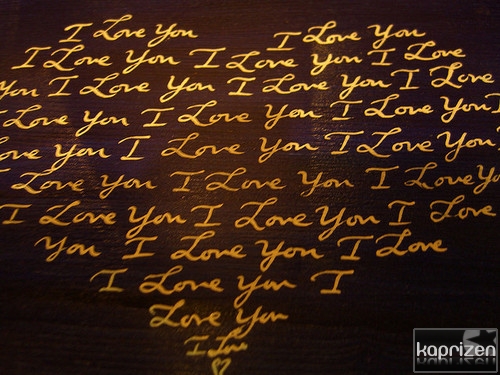 I Love You I Love You
I Love You I Love You I Love
You I Love You I Love You I Love
Love You I Love You I Love You I
Love You I Love You I Love You
Love You I Love You I Love You
I Love You I Love You I Love
You I Love You I Love
I Love You I
Love You
I Love
kaprizen